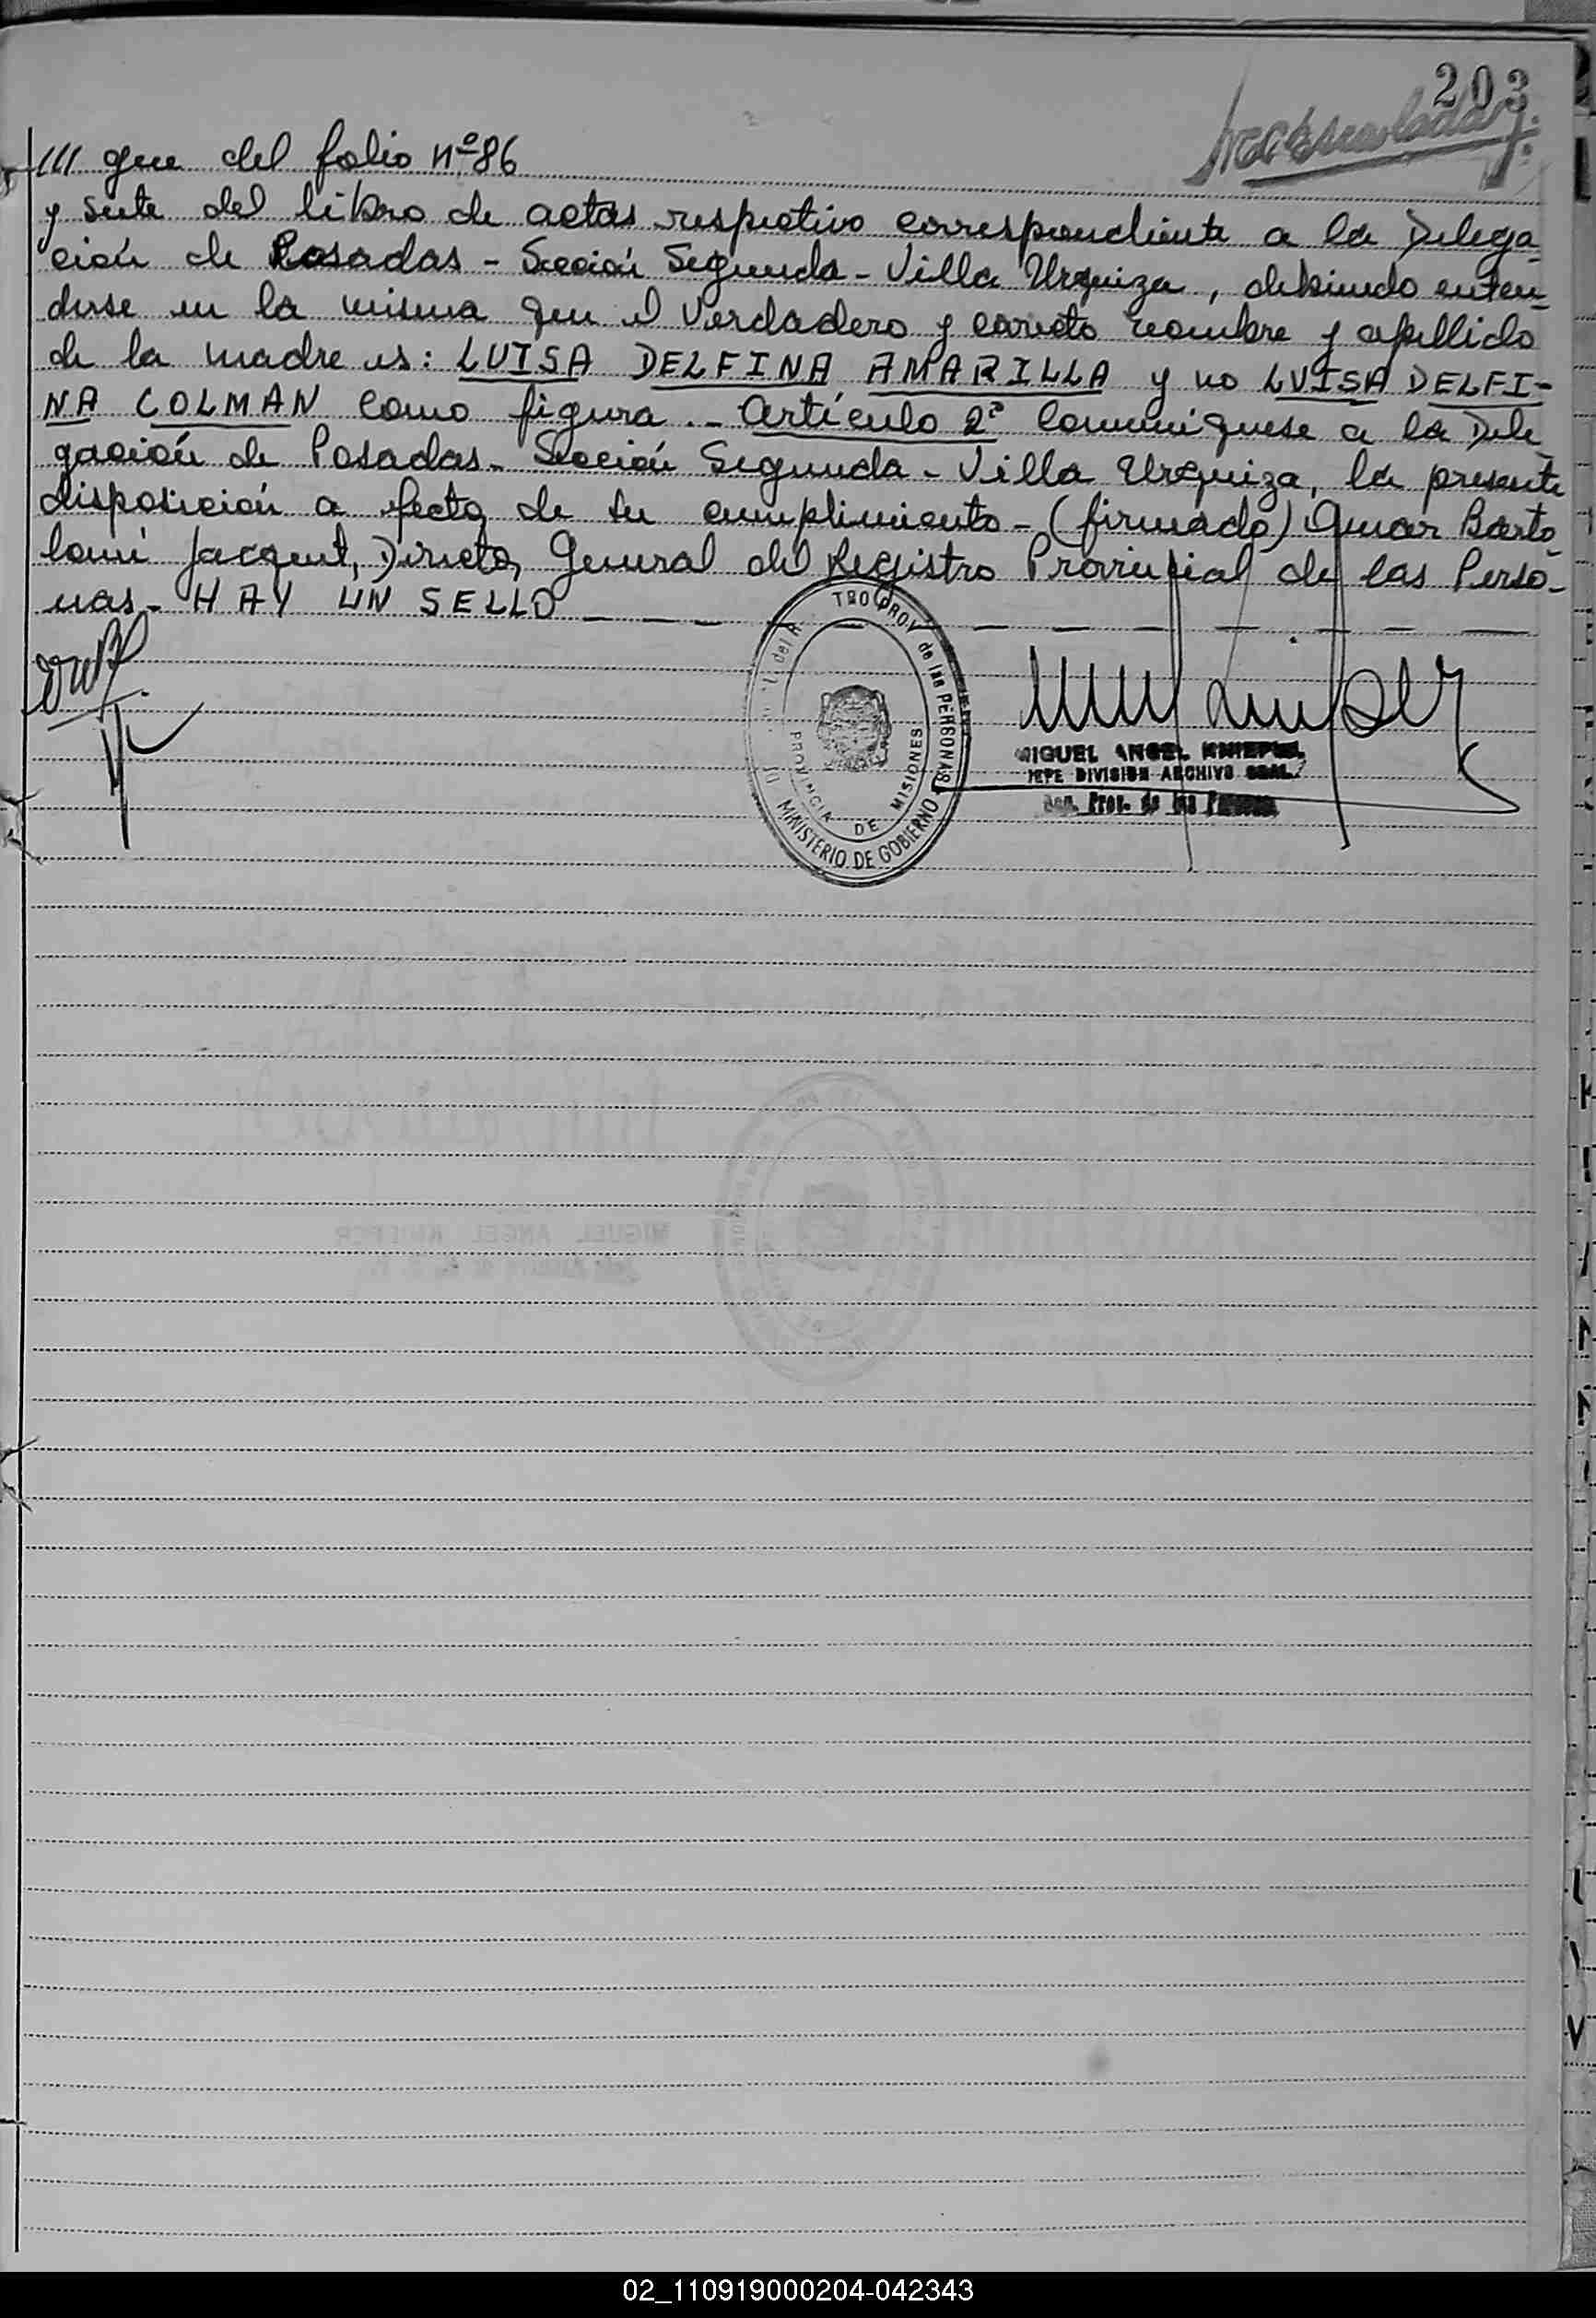 203
/// que del folio nº 86
y siete del libro de actas respectivo correspondiente a la Delega
ción de Posadas - Sección Segunda - Villa Urquiza, debiendo enten-
derse en la misma que el verdadero y correcto nombre y apellido
de la madre es: LUISA DELFINA AMARILLA y no LUISA DELFI-
NA COLMAN como figura.- Artículo 2º Comuníquese a la Dele
gación de Posadas - Sección Segunda - Villa Urquiza, la presente
disposición a efecto de su cumplimiento - (firmado) Omar Barto
lomé Jacquet, Director General del Registro Provincial de las Perso-
nas - HAY UN SELLO
TRO PROV de las PERSONAS
PROVINCIA DE MISIONES
MINISTERIO DE GOBIERNO
MIGUEL ANGEL KNIEPER
JEFE DIVISION ARCHIVO GRAL.
Prov. de las Personas
MIGUEL ANGEL KNIEPER
02_110919000204-042343